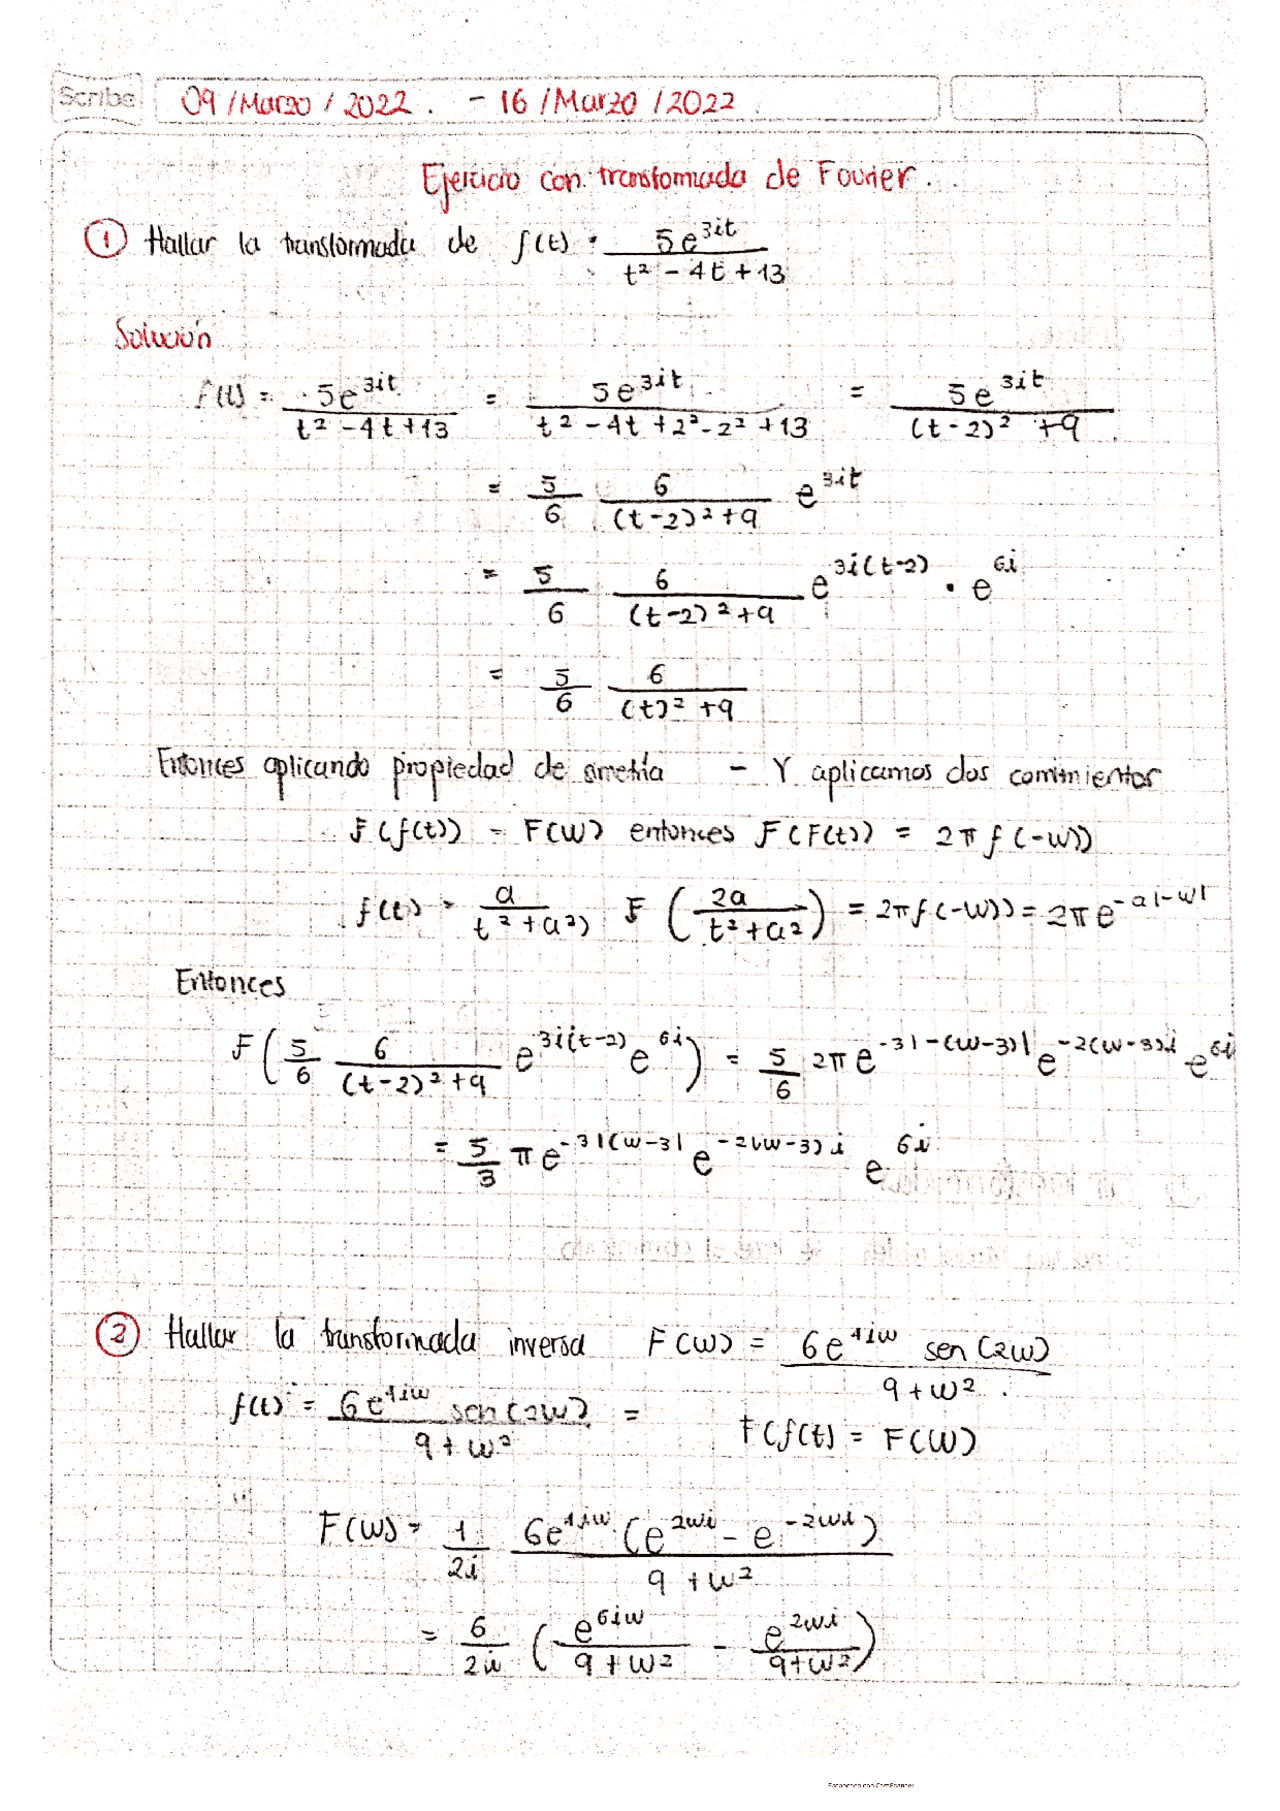 Scribe 09/Marzo/2022. - 16/Marzo/2022
Ejercicio con transformada de Fourier.
① Hallar la transformada de f(t) = 5e^{3it} / (t² - 4t + 13)
Solución
f(t) = 5e^{3it} / (t² - 4t + 13) = 5e^{3it} / (t² - 4t + 2² - 2² + 13) = 5e^{3it} / ((t-2)² + 9)
= 5/6 6/((t-2)² + 9) e^{3it}
= 5/6 6/((t-2)² + 9) e^{3i(t-2)} · e^{6i}
= 5/6 6/((t)² + 9)
Entonces aplicando propiedad de simetría - Y aplicamos dos
F(f(t)) = F(w) entonces F(F(t)) = 2π f(-w))
f(t) = a/(t² + a²) F(2a/(t² + a²)) = 2πf(-w)) = 2πe^{-a|-w|}
Entonces
F(5/6 6/((t-2)² + 9) e^{3i(t-2)} e^{6i}) = 5/6 2πe^{-3|-(w-3)|} e^{-2(w-3)i} e^{6i}
= 5/3 πe^{-3|(w-3|} e^{-2(w-3)i} e^{6i}
② Hallar la transformada inversa F(w) = 6e^{4iw} sen(2w) / (9 + w²).
f(t) = 6e^{4iw} sen(2w) / (9 + w²) = F(f(t) = F(w)
F(w) = 1/2i 6e^{4iw} (e^{2wi} - e^{-2wi}) / (9 + w²)
= 6/2i (e^{6iw}/(9 + w²) - e^{2wi}/(9 + w²))
Escaneado con CamScanner